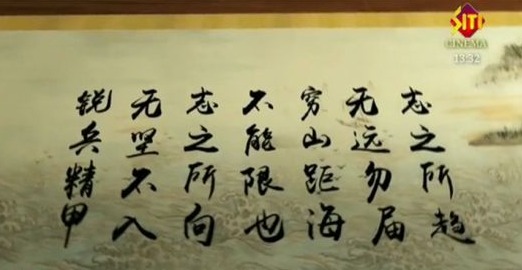 SITI
CINEMA
13:32
志之所趋
无远勿届
穷山距海
不能限也
志之所向
无坚不入
锐兵精甲